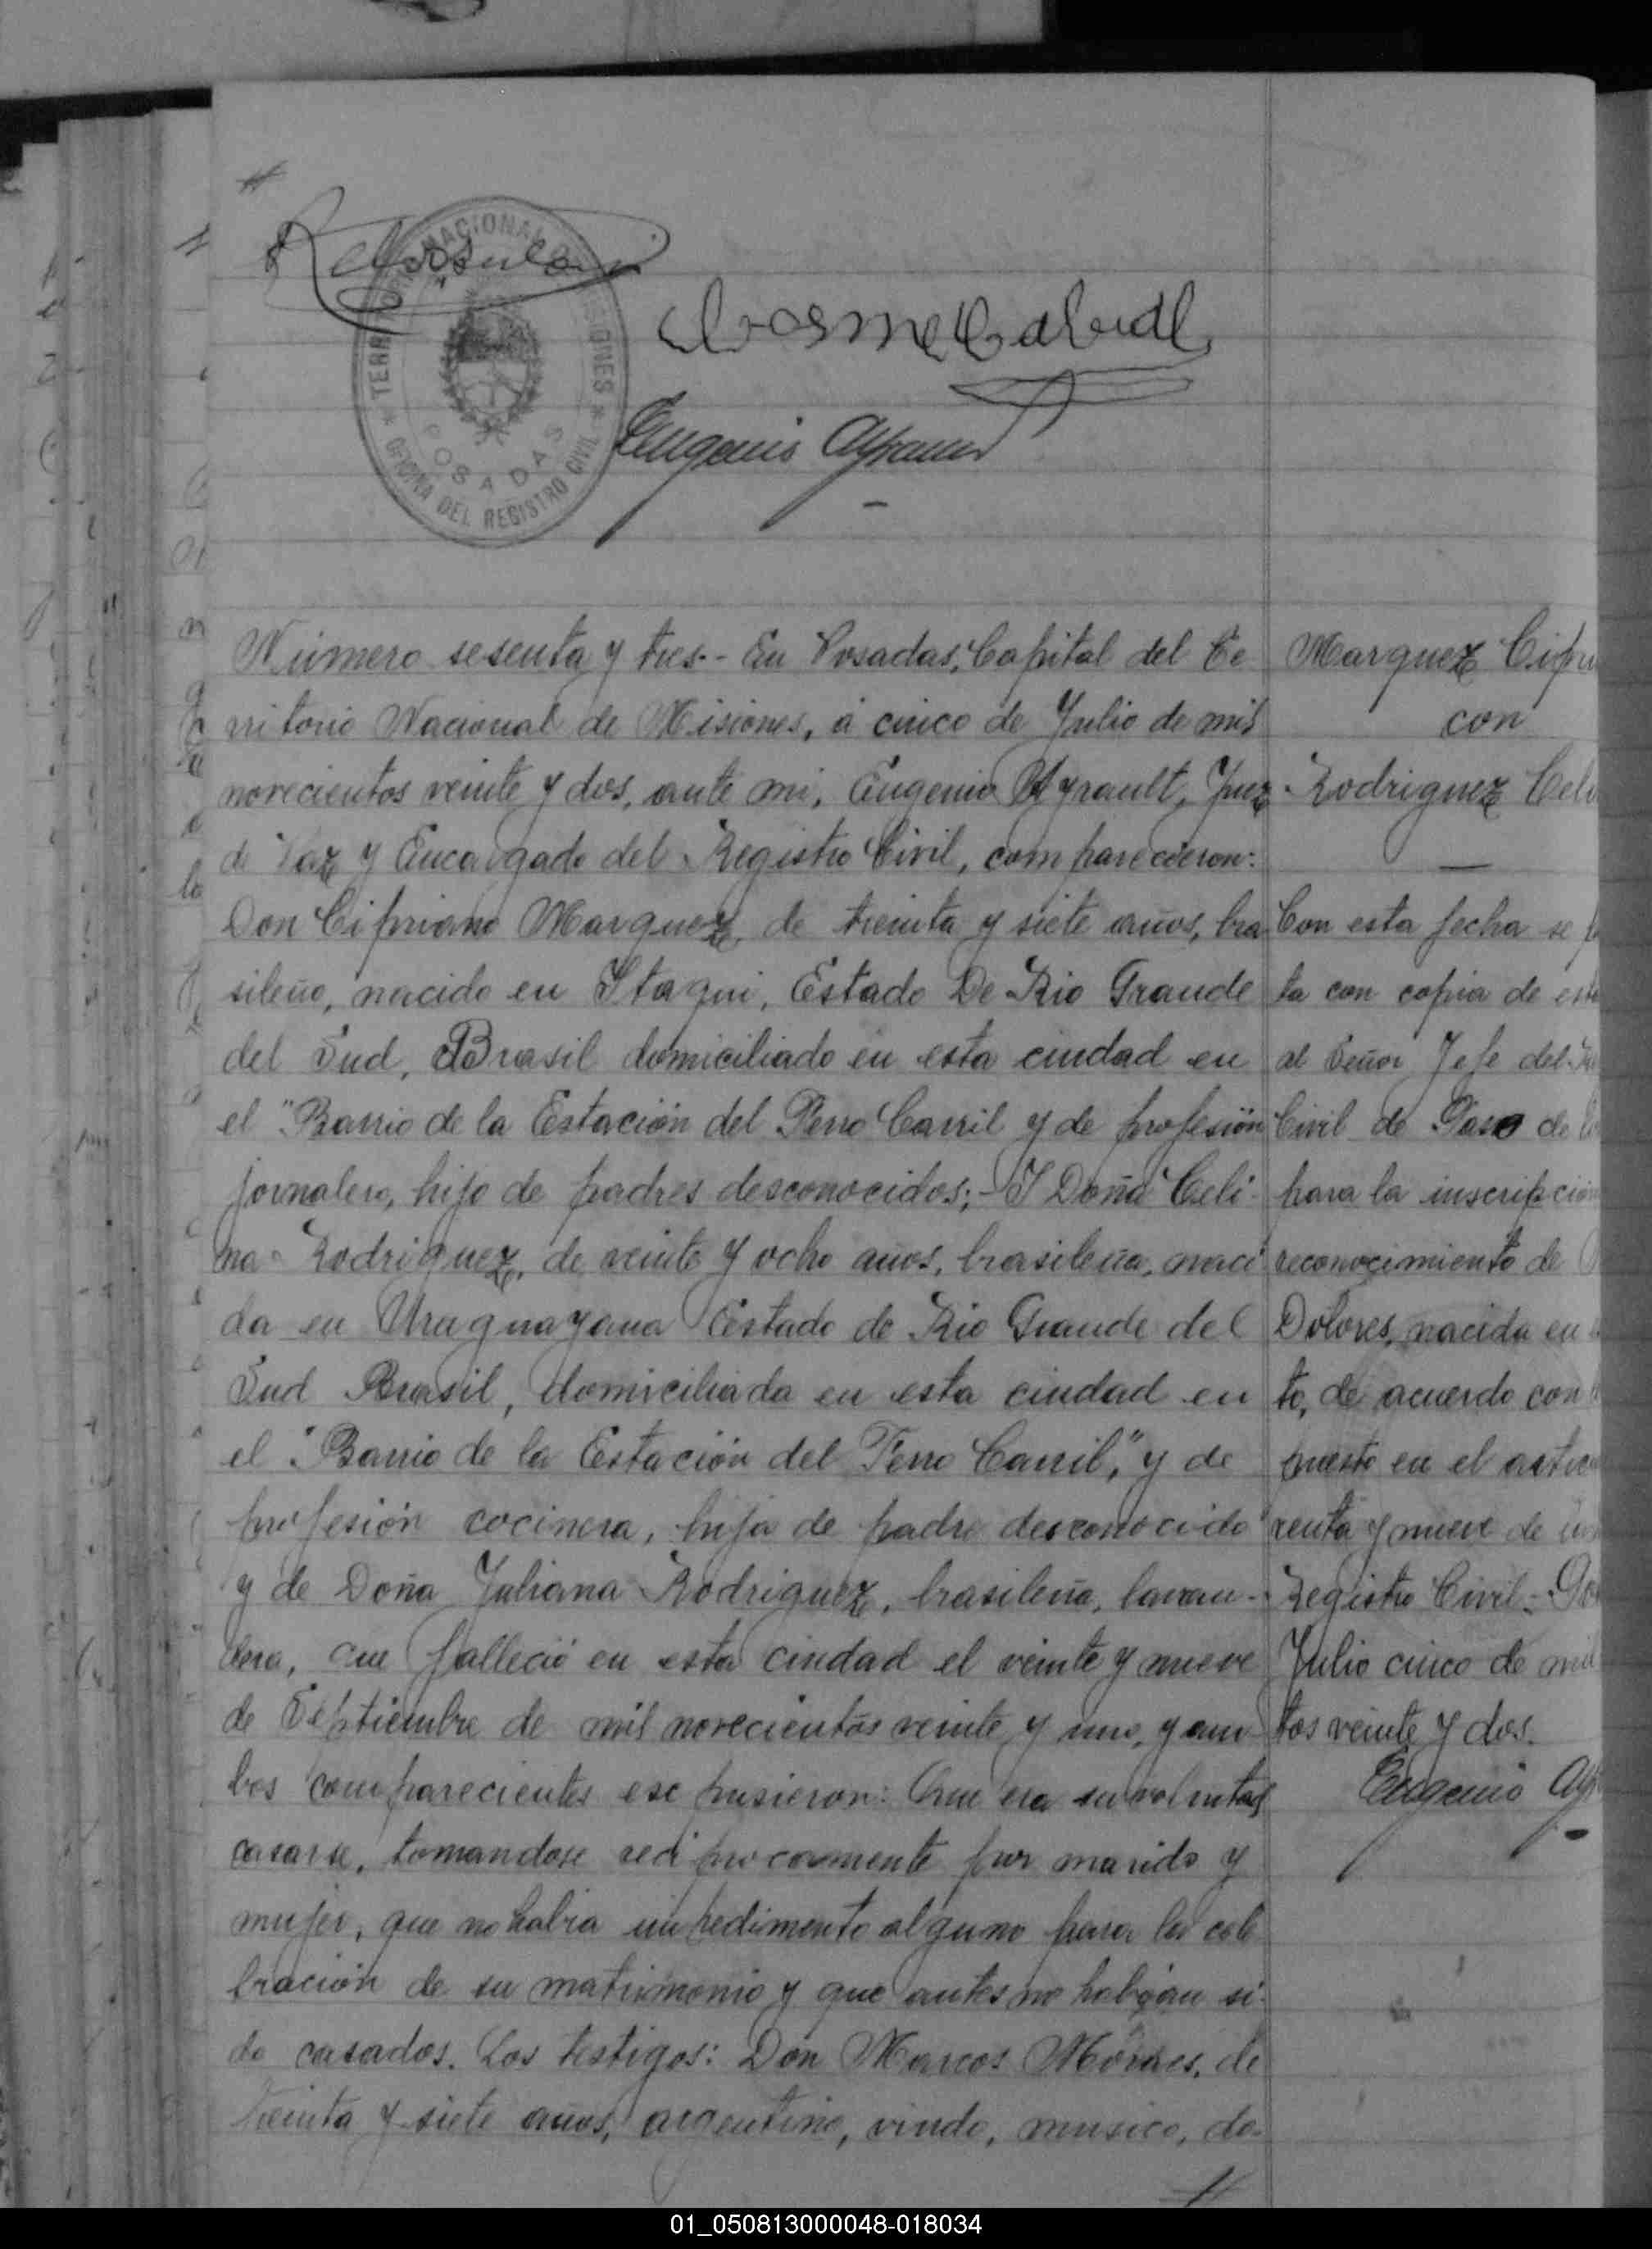 TERRITORIO NACIONAL DE MISIONES
POSADAS
OFICINA DEL REGISTRO CIVIL
Cosme Cabral
Eugenio Ayrault
Número sesenta y tres.- En Posadas, Capital del Te
rritorio Nacional de Misiones, á cinco de Julio de mil
novecientos veinte y dos, ante mi, Eugenio Ayrault, Juez
de Paz y Encargado del Registro Civil, comparecieron:
Don Cipriano Marquez, de treinta y siete años, bra
sileño, nacido en Itaqui, Estado De Rio Grande
del Sud, Brasil domiciliado en esta ciudad en
el "Barrio de la Estación del Ferro Carril y de profesión
jornalero, hijo de padres desconocidos;- Y Doña Celi-
na Rodriguez, de veinte y ocho años, brasileña, naci
da en Uruguayana Estado de Rio Grande del
Sud Brasil, domiciliada en esta ciudad en
el "Barrio de la Estación del Ferro Carril," y de
profesión cocinera, hija de padre desconocido
y de Doña Juliana Rodriguez, brasileña, lavan-
dera, que falleció en esta ciudad el veinte y nueve
de Septiembre de mil novecientos veinte y uno, y am-
bos comparecientes expusieron: Que era su voluntad
casarse, tomandose reciprocamente por marido y
mujer, que no habia impedimento alguno para la cele
bración de su matrimonio y que antes no habian si-
do casados. Los testigos: Don Marcos Moraes, de
treinta y siete años, argentino, viudo, musico, do-
Marquez Cipri
con
Rodriguez Celi
Con esta fecha se
ta con copia de este
al Señor Jefe del
Civil de Paso de
para la inscripción
reconocimiento de
Dolores, nacida en
to, de acuerdo con
puesto en el articu
renta y nueve de
Registro Civil.- Pos
Julio cinco de mil
tos veinte y dos.
Eugenio Ay
01_050813000048-018034